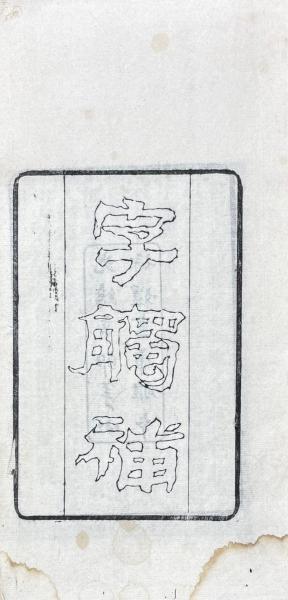 字觸補